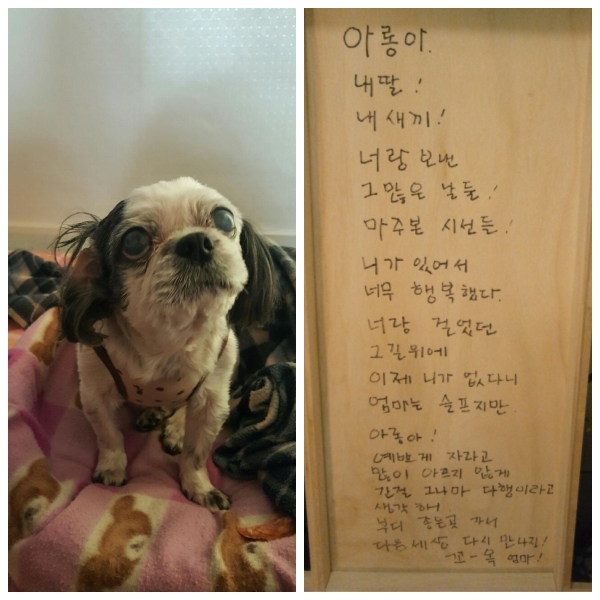 아롱아.
내딸!
내 새끼!
너랑 보낸
그 많은 날들!
마주본 시선들!
니가 있어서
너무 행복했다.
너랑 걸었던
그길위에
이제 니가 없다니
엄마는 슬프지만.
아롱아!
예쁘게 자라고
많이 아프지 않게
간걸 그나마 다행이라고
생각하니
부디 좋은곳 가서
다음 세상 다시 만나길!
꼬-옥 엄마!